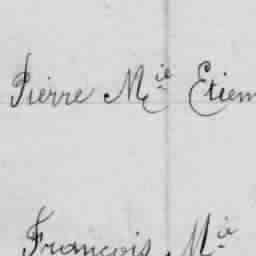 Pierre M.ie Etien
François M.ie